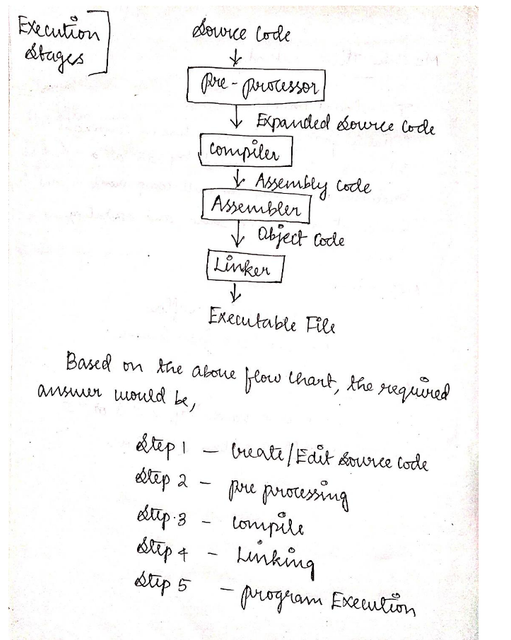 Execution
Stages
Source Code
Pre-processor
Expanded Source Code
Compiler
Assembly Code
Assembler
Object Code
Linker
Executable File
Based on the above flow chart, the required
answer would be,
Step 1 - Create/Edit Source Code
Step 2 - pre processing
Step.3 - Compile
Step 4 - Linking
Step 5 - program Execution